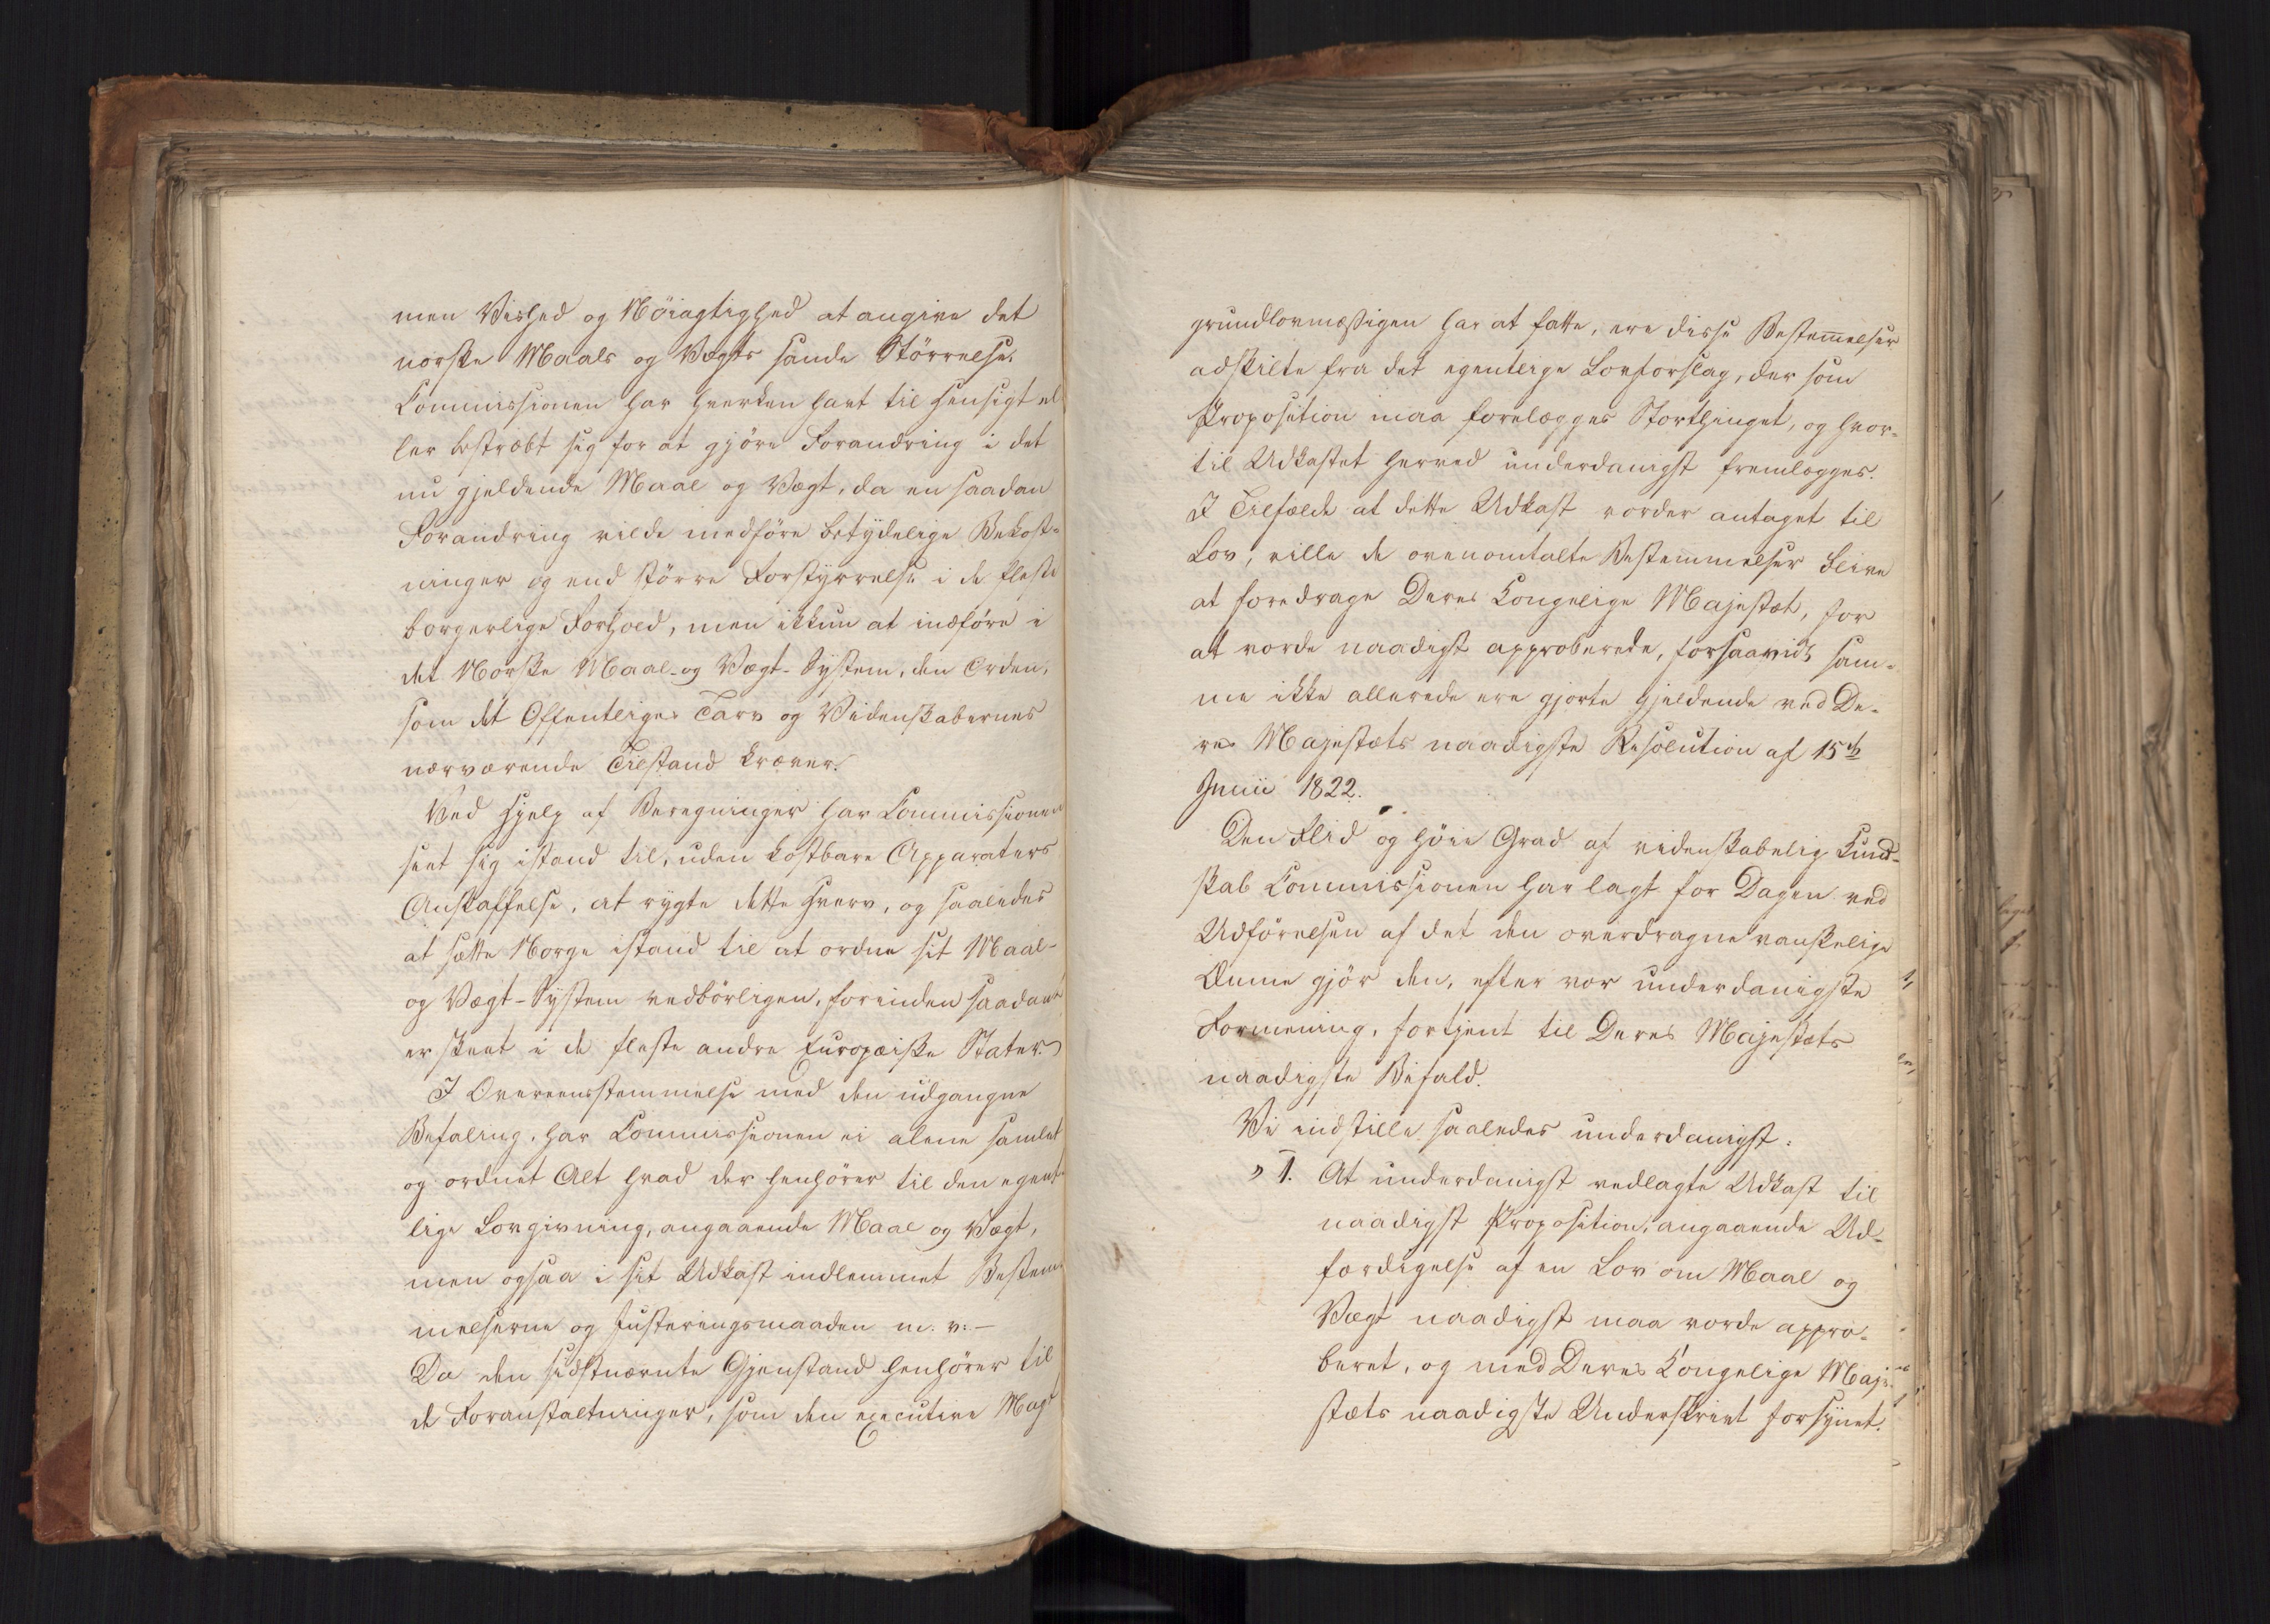 men Vished og Nöiagtighed at angive det
norske Maals og Vægts sande Störrelse.
Commissionen har hverken havt til Hensigt el
ler bestræbt sig for at gjöre Forandring i det
nu gjeldende Maal og Vægt, da en saadan
Forandring vilde medföre betydelige Bekost-
ninger og end större Forstyrrelse i de fleste
borgerlige Forhold, men ikkun at indföre i
det Norske Maal- og Vægt-System, den Orden,
som det Offentliges Tarv og Videnskabernes
nærværende Tilstand kræver.
Ved Hjelp af Beregninger har Commissionen
seet sig istand til, uden kostbare Apparaters
Anskaffelse, at rygte dette Hverv, og saaledes
at sætte Norge istand til at ordne sit Maal-
og Vægt-System vedbörligen, forinden saadant
er skeet i de fleste andre Europæiske Stater.
I Overeensstemmelse med den udgangne
Befaling, har Commissionen ei alene samlet
og ordnet Alt hvad der henhörer til den egent
lige Lovgivning, angaaende Maal og Vægt,
men ogsaa i sit Udkast indlemmet Bestem
melserne og Justeringsmaaden m. v. -
Da den sidstnævnte Gjenstand henhörer til
de Foranstaltninger, som den executive Magt
grundlovmæssigen har at fatte, ere disse Bestemmelser
adskilte fra det egentlige Lovforslag, der som
Proposition maa forelægges Storthinget, og hvor-
til Udkastet herved underdanigst fremlægges.
I Tilfælde at dette Udkast vorder antaget til
Lov, ville de ovenomtalte Bestemmelser blive
at foredrage Deres Kongelige Majestæt, for
at vorde naadigst approberede, forsaavidt sam-
me ikke allerede ere gjorte gjeldende ved De-
res Majestæts naadigste Resolution af 15de
Junii 1822.
Den Flid og höie Grad af videnskabelig Kund-
skab Commissionen har lagt for Dagen ved
Udförelsen af det den overdragne vanskelige
Æmne gjör den, efter vor underdanigste
Formening, fortjent til Deres Majestæts
naadigste Bifald.
Vi indstille saaledes underdanigst:
" 1. At underdanigst vedlagte Udkast til
naadigst Proposition, angaaende Ud-
færdigelse af en Lov om Maal og
Vægt naadigst maa vorde appro-
beret, og med Deres Kongelige Maje-
stæts naadigste Underskrivt forsynet.